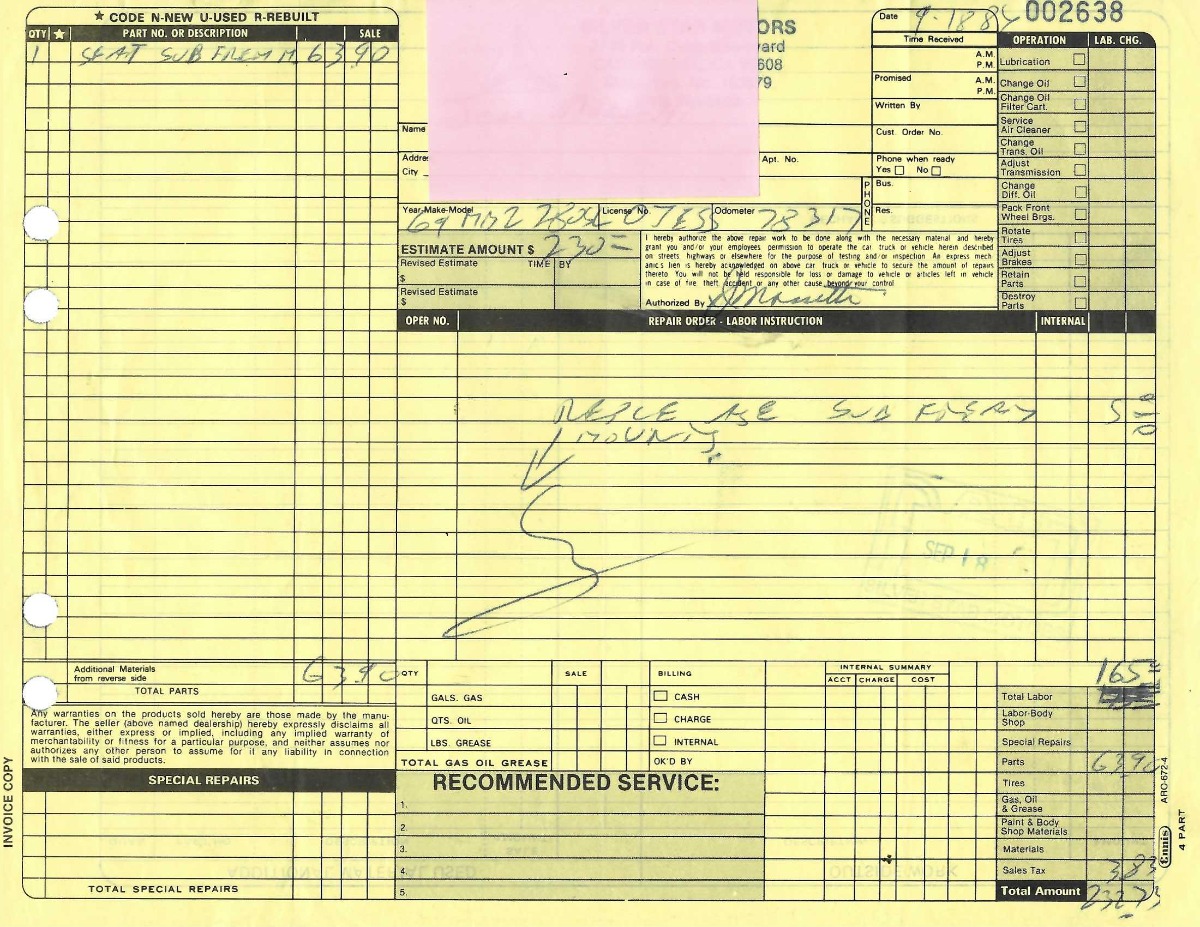 ★ CODE N-NEW U-USED R-REBUILT
QTY ★ PART NO. OR DESCRIPTION SALE
1 SEAT SUB FREM M. 63.90
ORS
ard
608
79
Date 9-18-84 002638
Time Received
A.M.
P.M.
Promised A.M.
P.M.
Written By
Cust. Order No.
Phone when ready
Yes No
Name
Addre
City
Apt. No.
PHONE
Bus.
Res.
Year-Make-Model 69 License No. Odometer 78317
ESTIMATE AMOUNT $ 230=
Revised Estimate TIME BY
$
Revised Estimate
$
I hereby authorize the above repair work to be done along with the necessary material and hereby
grant you and/or your employees permission to operate the car truck or vehicle herein described
on streets, highways or elsewhere for the purpose of testing and/or inspection. An express mech
anics lien is hereby acknowledged on above car truck or vehicle to secure the amount of repairs
thereto. You will not be held responsible for loss or damage to vehicle or articles left in vehicle
in case of fire theft, accident or any other cause beyond your control
Authorized By
OPERATION LAB. CHG.
Lubrication
Change Oil
Change Oil
Filter Cart.
Service
Air Cleaner
Change
Trans. Oil
Adjust
Transmission
Change
Diff. Oil
Pack Front
Wheel Brgs.
Rotate
Tires
Adjust
Brakes
Retain
Parts
Destroy
Parts
OPER NO. REPAIR ORDER - LABOR INSTRUCTION INTERNAL
SUB 5
MOUNTS
SEP 18
Additional Materials
from reverse side
TOTAL PARTS 63.90
Any warranties on the products sold hereby are those made by the manu-
facturer. The seller (above named dealership) hereby expressly disclaims all
warranties, either express or implied, including any implied warranty of
merchantability or fitness for a particular purpose, and neither assumes nor
authorizes any other person to assume for it any liability in connection
with the sale of said products.
SPECIAL REPAIRS
TOTAL SPECIAL REPAIRS
QTY SALE
GALS. GAS
QTS. OIL
LBS. GREASE
TOTAL GAS OIL GREASE
BILLING
CASH
CHARGE
INTERNAL
OK'D BY
RECOMMENDED SERVICE:
1.
2.
3.
4.
5.
INTERNAL SUMMARY
ACCT CHARGE COST
165
Total Labor
Labor-Body
Shop
Special Repairs
Parts 63.90
Tires
Gas, Oil
& Grease
Paint & Body
Shop Materials
Materials
Sales Tax 3.83
Total Amount 232.73
INVOICE COPY
Ennis ARO-672-4
4 PART